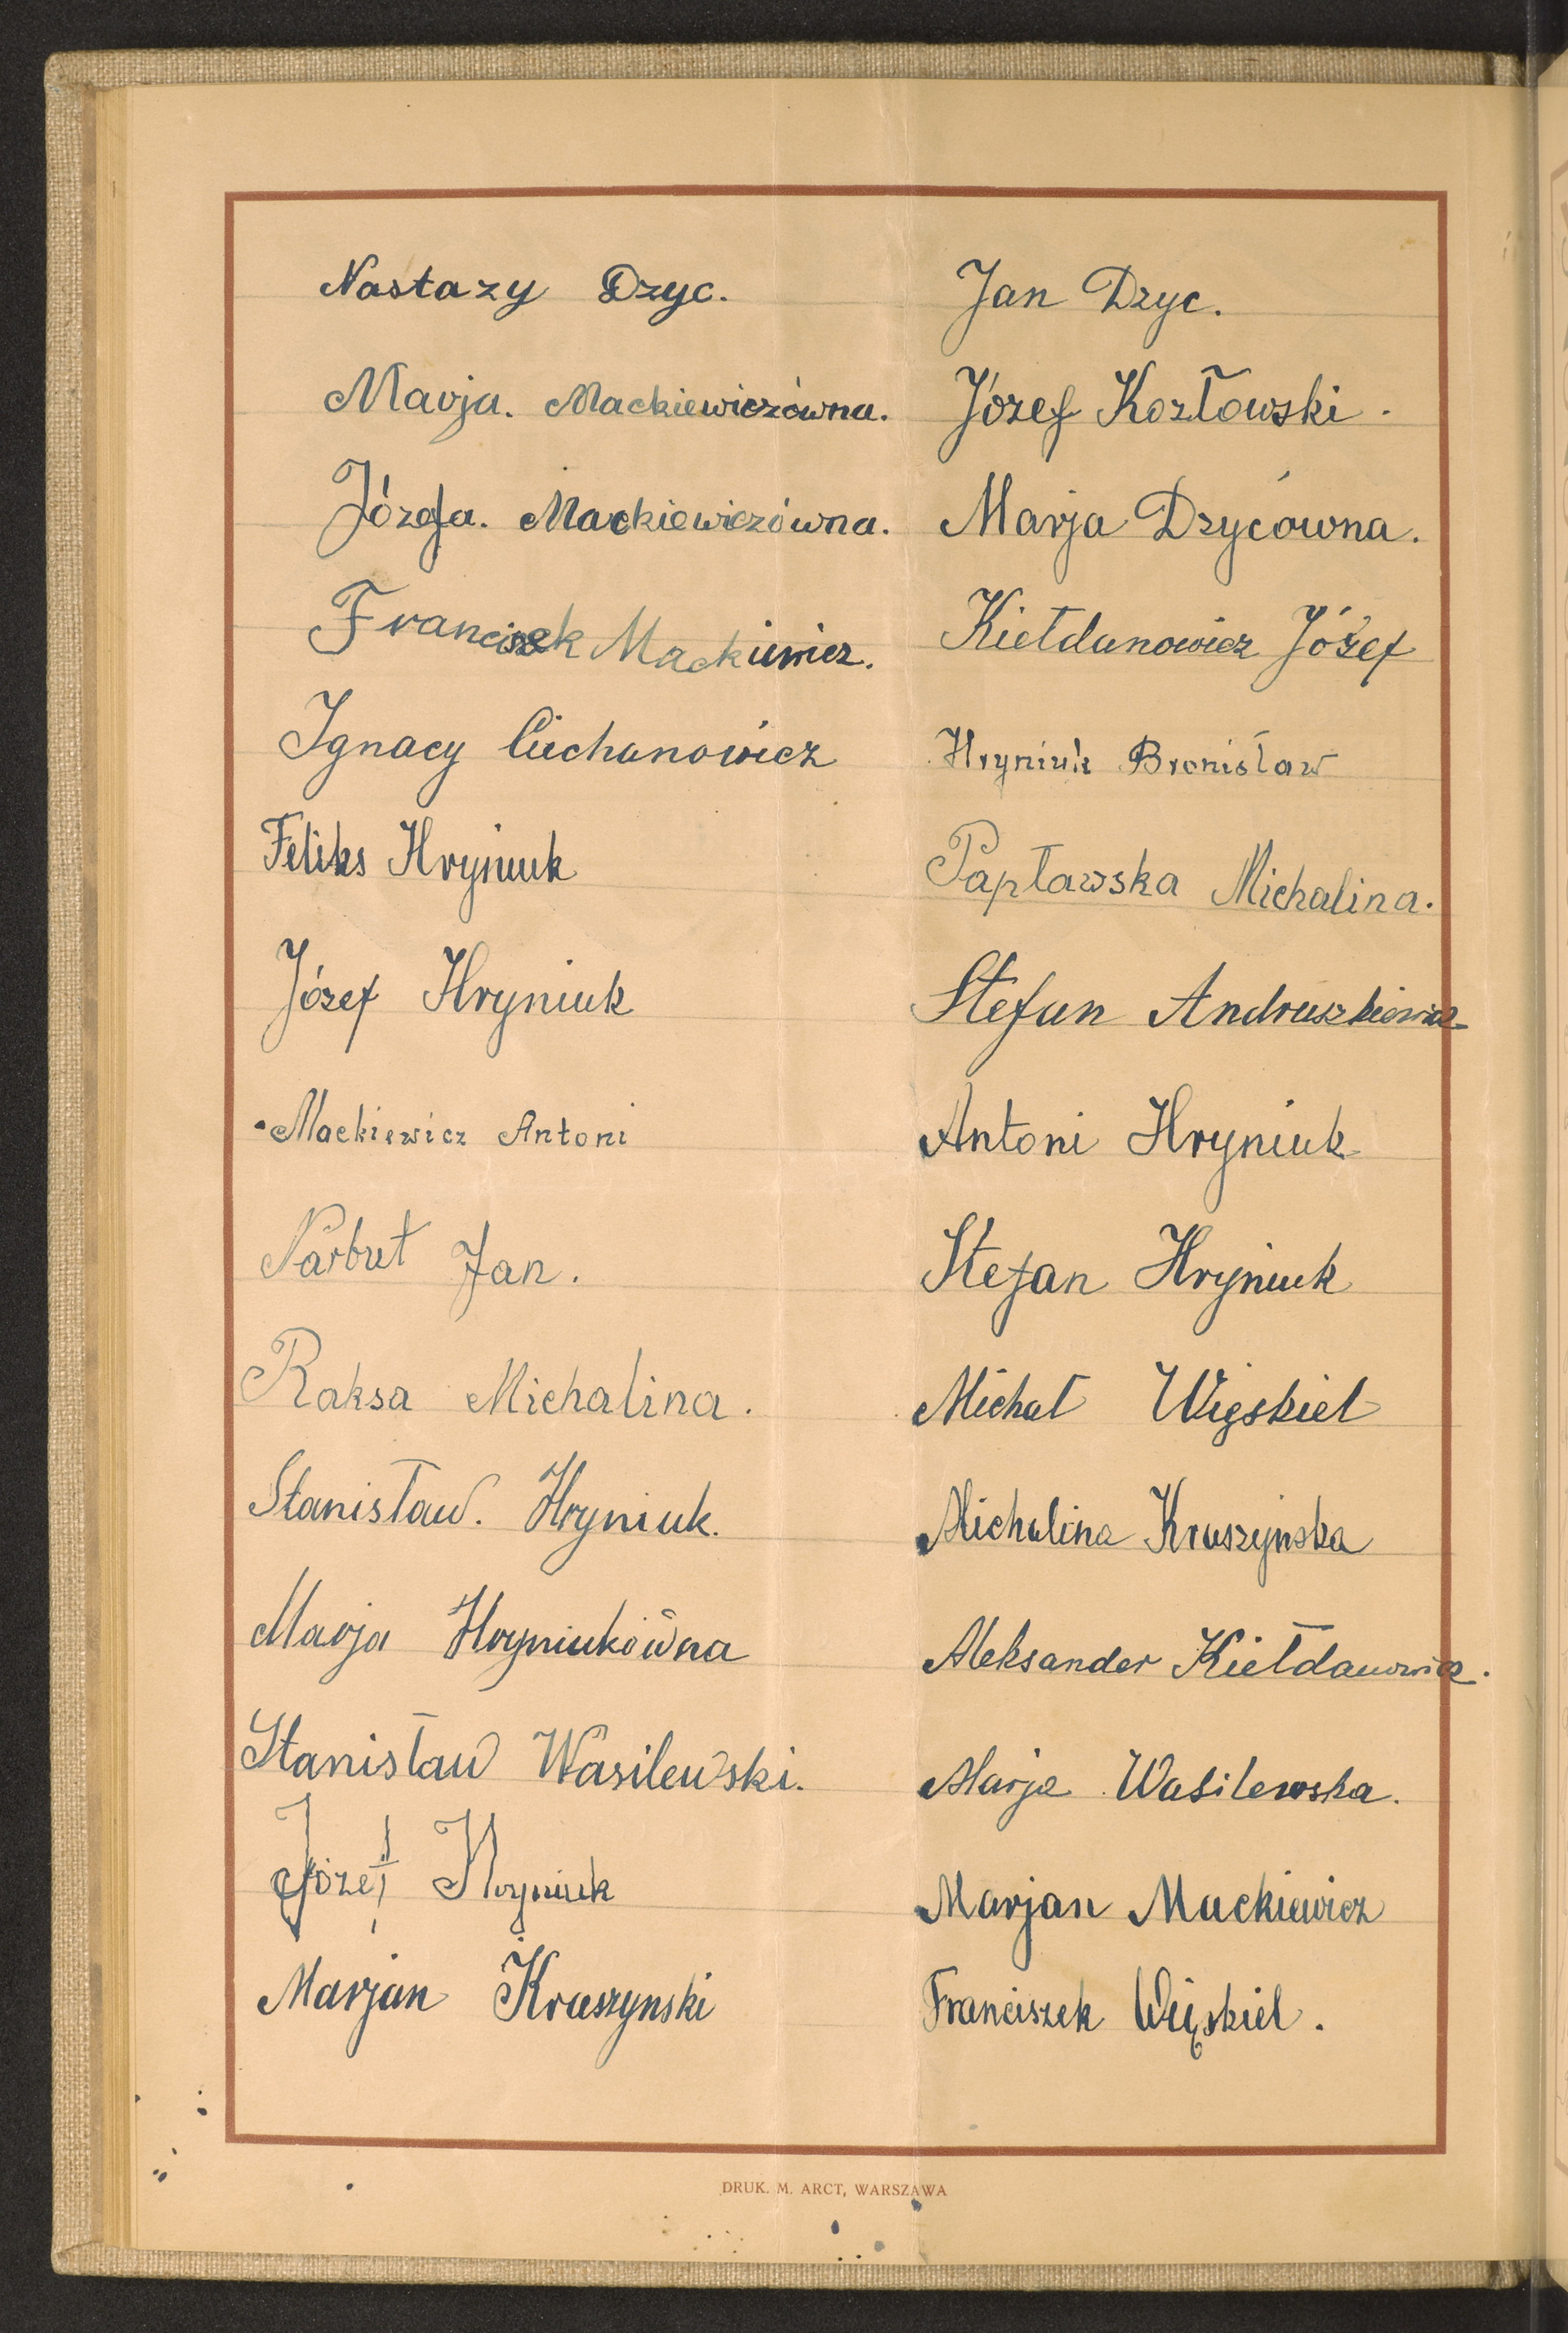 Nastazy Dzyc.
Marja. Mackiewiczówna.
Józefa. Mackiewiczówna.
Franciszek Mackiewicz.
Ignacy Ciechanowicz
Feliks Hryniuk
Józef Hryniuk
Mackiewicz Antoni
Narbut Jan.
Raksa Michalina.
Stanisław. Hryniuk.
Marja Hryniukówna
Stanisław Wasilewski.
Józef Hryniuk
Marjan Kruszynski
Jan Dzyc.
Józef Kozłowski.
Marja Dzycówna.
Kiełdanowicz Józef
Hryniuk Bronisław
Papławska Michalina.
Stefan Andruszkiewicz
Antoni Hryniuk
Stefan Hryniuk
Michał Więskiel
Michalina Kruszyńska
Aleksander Kiełdanowicz.
Marja Wasilewska.
Marjan Mackiewicz
Franciszek Więskiel.
DRUK. M. ARCT, WARSZAWA